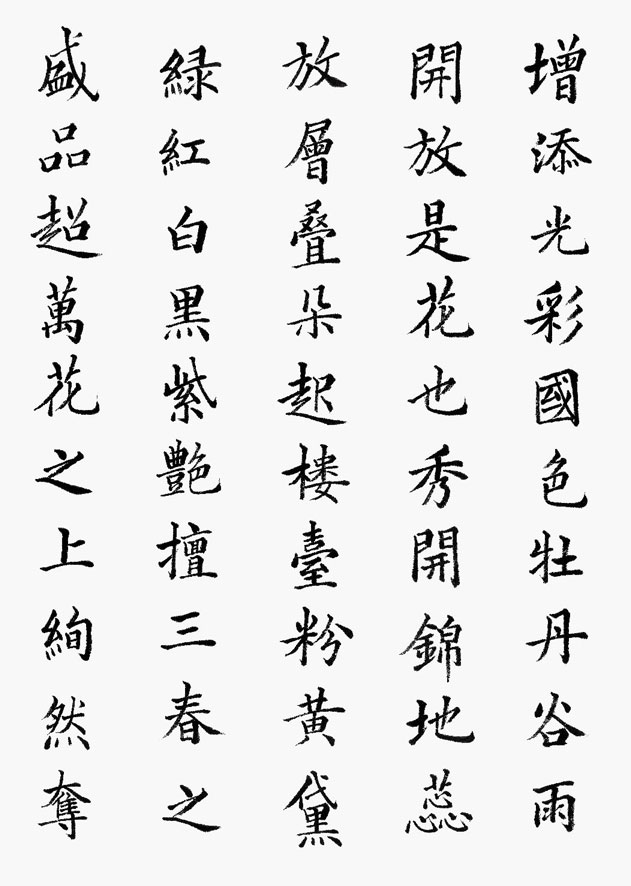 增添光彩國色牡丹谷雨
開放是花也秀開錦地蕊
放層叠朵起楼臺粉黃黛
緑紅白黑紫艷擅三春之
盛品超萬花之上絢然奪